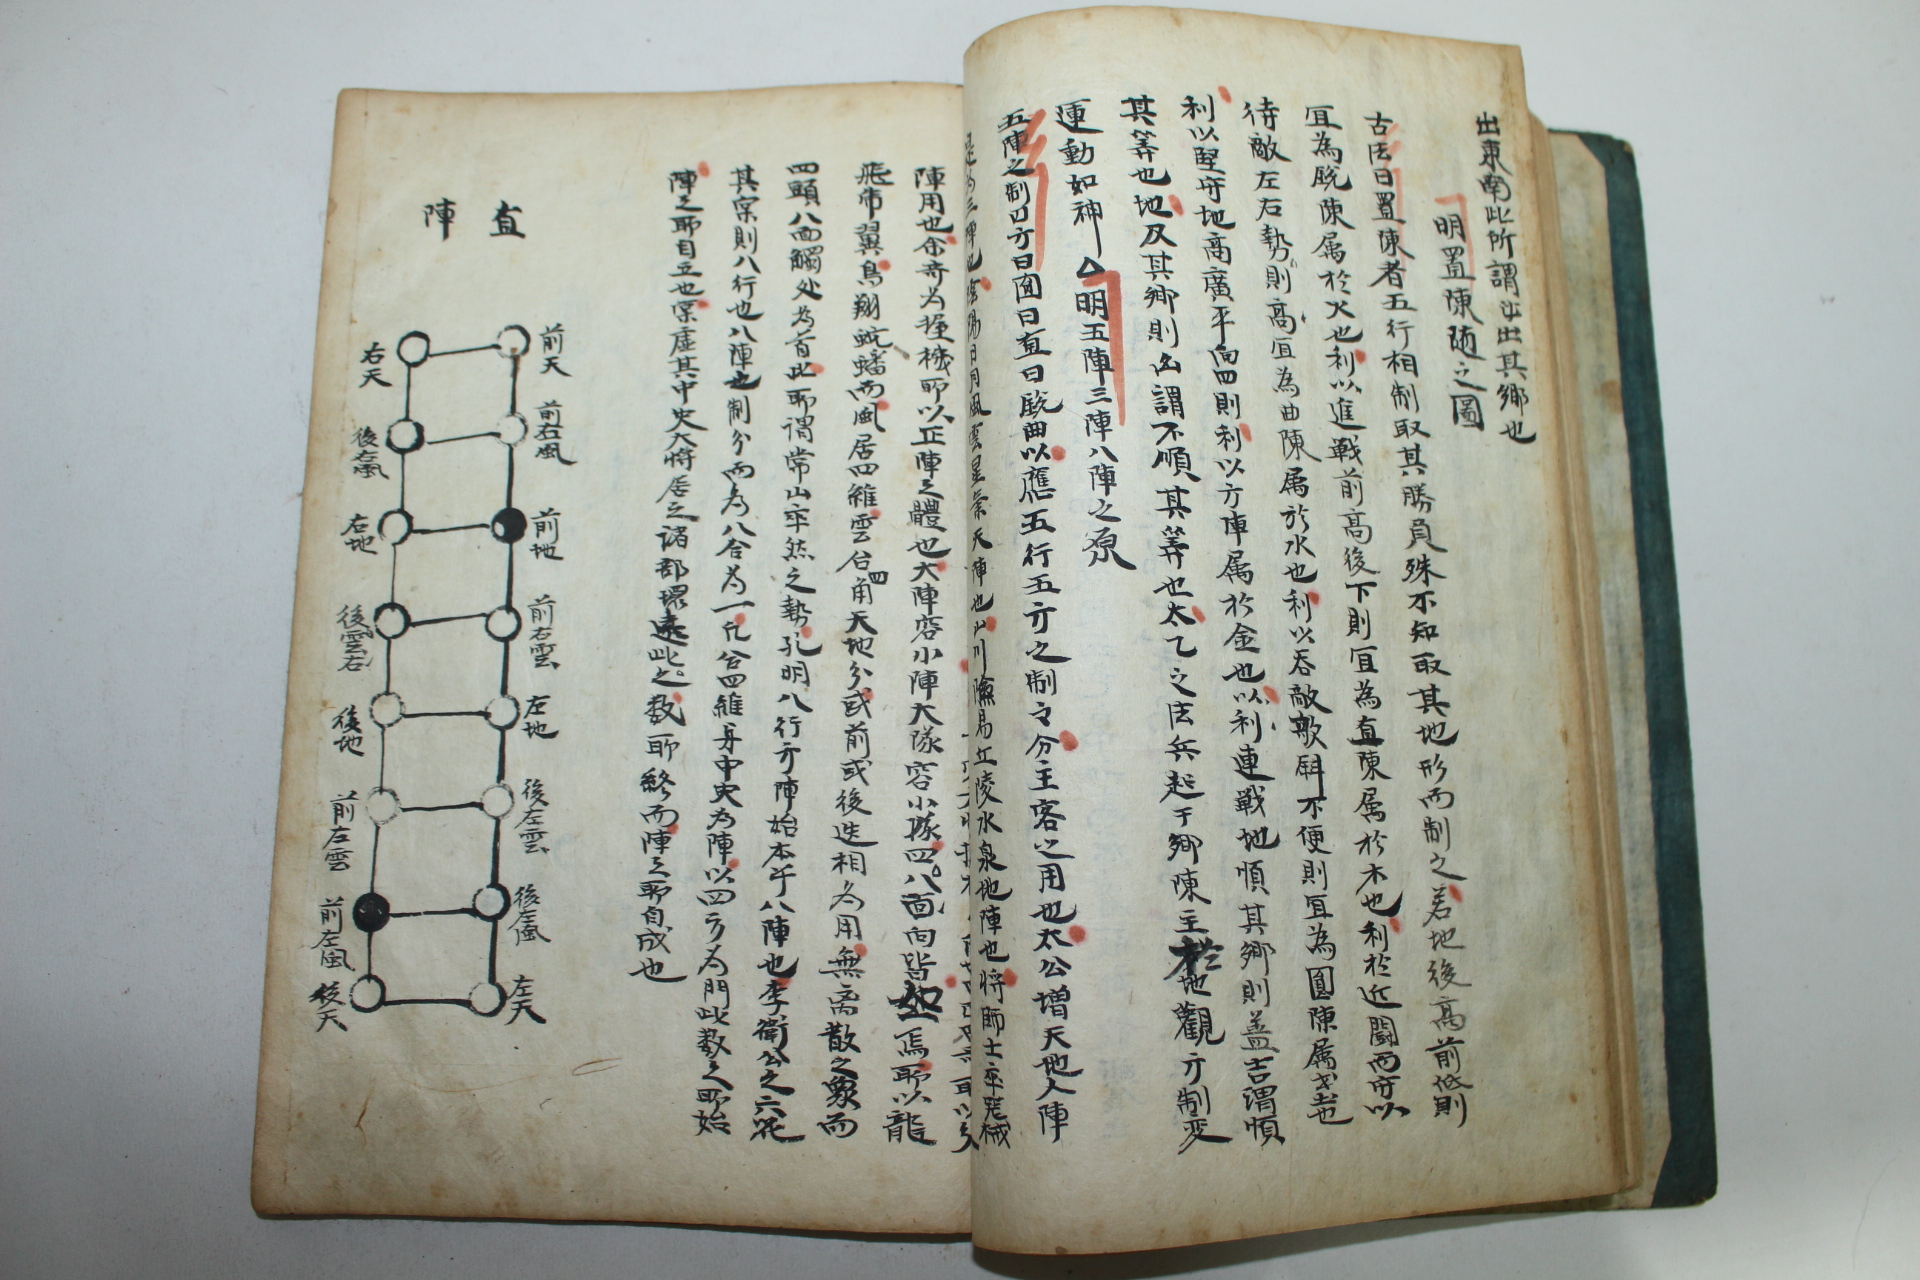 出東南此所謂出出其鄉也
明置陳隨之圖
古法曰置陳者五行相制取其勝負殊不知取其地形而制之若地後高前低則
宜為脫陳属於火也利以進戰前高後下則宜為直陳属於木也利於近鬪而守以
待敵左右勢則高宜為曲陳属於水也利以吞敵不便則宜為圓陳属
利以堅守地高廣平向四則利以方陣属於金也以利連戰地順其鄉則盖吉謂順
其筭也地及其鄉則凶謂不順其筭也太乙之法兵起于鄉陳主於地觀方制変
運動如神 明五陣三陣八陣之原
五陣之制曰方曰圓曰直曰脫曲以應五行五方之制分主客之用也太公増天地人陣
是為三陣也陰陽日月風雲星氣天陣也山川險易丘陵水泉地陣也將師士卒器械
陣用也余竒為握機所以正陣之體也大陣容小陣大隊容小隊四八面向皆如焉所以龍
飛帝翼鳥翔蛇蟠而風居四維雲台四角天地分或前或後迭相為用無离散之象而
四頭八面觸处為首此所謂常山率然之勢孔明八行方陣始本乎八陣也李衛公之六花
其宲則八行也八陣也制分而為八合為一凡谷四維身中央為陣以四方為門此数之所始
陣之所自立也宲虛其中央大將居之諸部環遶此之数所終而陣之所自成也
直陣
前天
右天
前右風
後右風
前地
右地
前右雲
後雲右
左地
後地
後左雲
前左雲
後左風
前左風
左天
後天